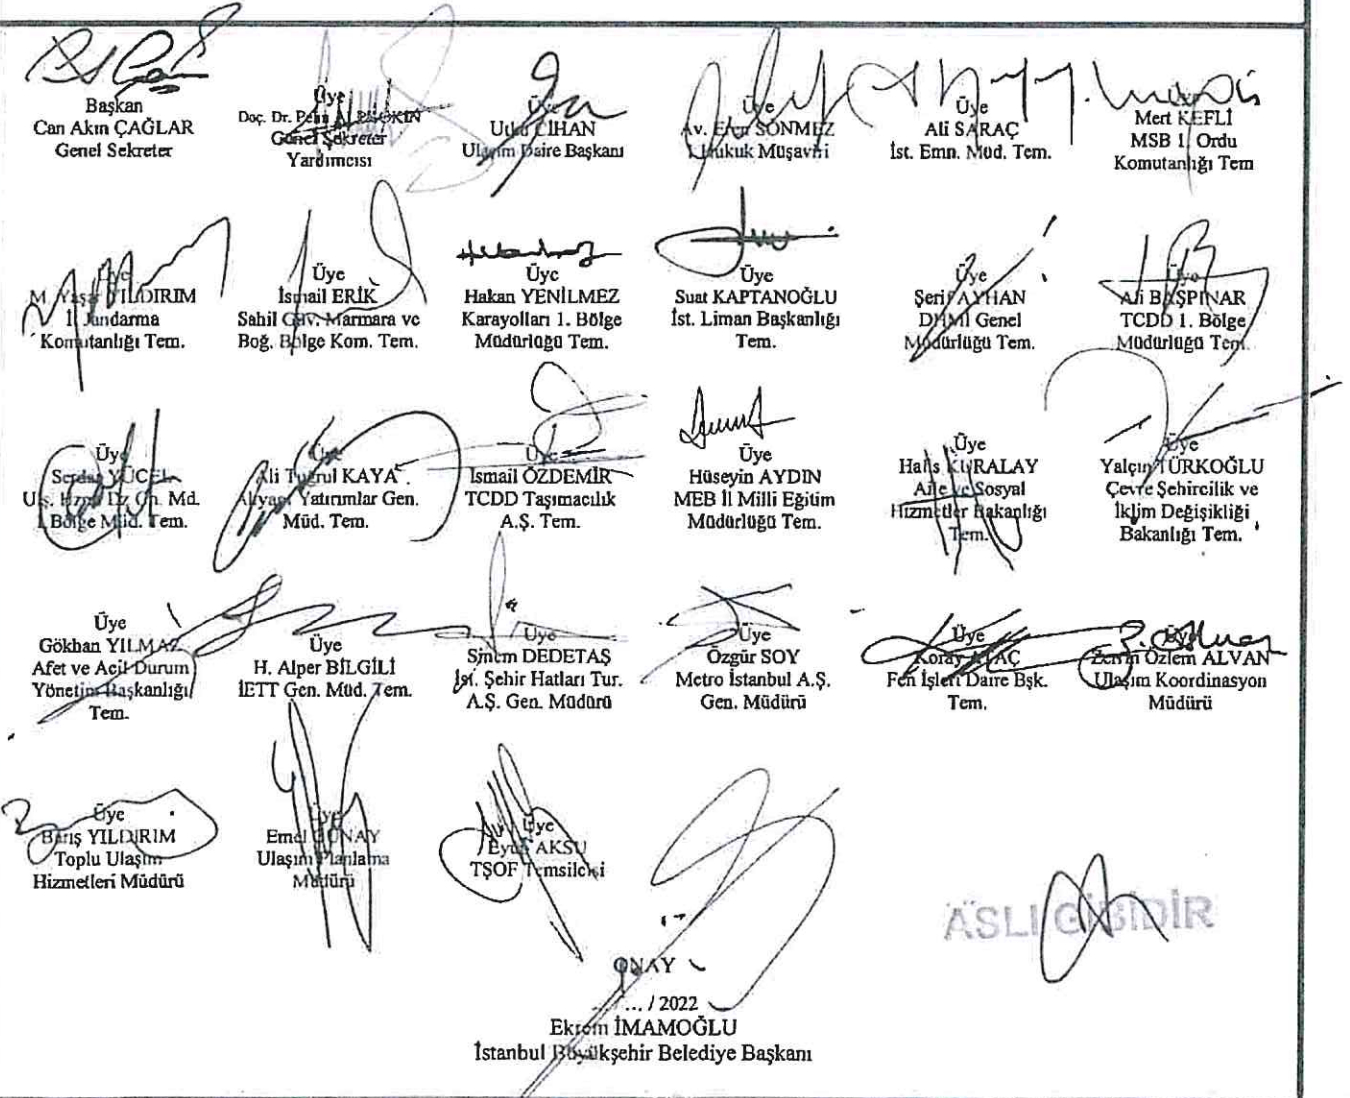 Başkan
Can Akın ÇAĞLAR
Genel Sekreter
Üye
Doç. Dr. Pelin
Genel Sekreter
Yardımcısı
Üye
Utku CİHAN
Ulaşım Daire Başkanı
Üye
Av. Eren SÖNMEZ
Hukuk Müşaviri
Üye
Ali SARAÇ
İst. Emn. Müd. Tem.
Mert KEFLİ
MSB 1. Ordu
Komutanlığı Tem
Üye
M. Yaşar YILDIRIM
Jandarma
Komutanlığı Tem.
Üye
İsmail ERİK
Sahil Güv. Marmara ve
Boğ. Bölge Kom. Tem.
Üye
Hakan YENİLMEZ
Karayolları 1. Bölge
Müdürlüğü Tem.
Üye
Suat KAPTANOĞLU
İst. Liman Başkanlığı
Tem.
Üye
Şerif AYHAN
DHMİ Genel
Müdürlüğü Tem.
Üye
Ali BAŞPINAR
TCDD 1. Bölge
Müdürlüğü Tem.
Üye
Serdar YÜCEL
Md.
Bölge Müd. Tem.
Üye
Ali Tuğrul KAYA
Altyapı Yatırımlar Gen.
Müd. Tem.
Üye
İsmail ÖZDEMİR
TCDD Taşımacılık
A.Ş. Tem.
Üye
Hüseyin AYDIN
MEB İl Milli Eğitim
Müdürlüğü Tem.
Üye
Halis KURALAY
Aile ve Sosyal
Hizmetler Bakanlığı
Tem.
Üye
Yalçın TÜRKOĞLU
Çevre Şehircilik ve
İklim Değişikliği
Bakanlığı Tem.
Üye
Gökhan YILMAZ
Afet ve Acil Durum
Yönetim Başkanlığı
Tem.
Üye
H. Alper BİLGİLİ
İETT Gen. Müd. Tem.
Üye
Sinem DEDETAŞ
İst. Şehir Hatları Tur.
A.Ş. Gen. Müdürü
Üye
Özgür SOY
Metro İstanbul A.Ş.
Gen. Müdürü
Üye
Koray ATAÇ
Fen İşleri Daire Bşk.
Tem.
Üye
Özlem ALVAN
Ulaşım Koordinasyon
Müdürü
Üye
Barış YILDIRIM
Toplu Ulaşım
Hizmetleri Müdürü
Üye
Emel GÜNAY
Ulaşım Planlama
Müdürü
Üye
Eyüp AKSU
TŞOF Temsilcisi
ASLI GİBİDİR
ONAY
... / 2022
Ekrem İMAMOĞLU
İstanbul Büyükşehir Belediye Başkanı